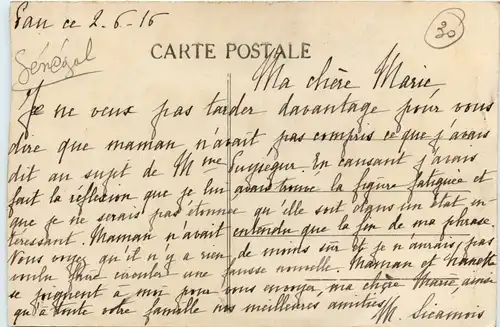 Pau ce 2-6-16
30
Sénégal
CARTE POSTALE
Ma chère Marie
Je ne veux pas tarder davantage pour vous
dire que maman n'avait pas compris ce que j'avais
dit au sujet de Mme Puységur. En causant j'avais
fait la réflexion que je lui avais trouvé la figure fatiguée et
que je ne serais pas étonnée qu'elle soit dans un état in-
téressant. Maman n'avait entendu que la fin de ma phrase.
Vous voyez qu'il n'y a rien de moins sûr et je n'aurais pas
voulu faire circuler une fausse nouvelle. Maman et
se joignent à moi pour vous envoyer, ma chère Marie, ainsi
qu'à toute votre famille nos meilleures amitiés.
M. Sicamois